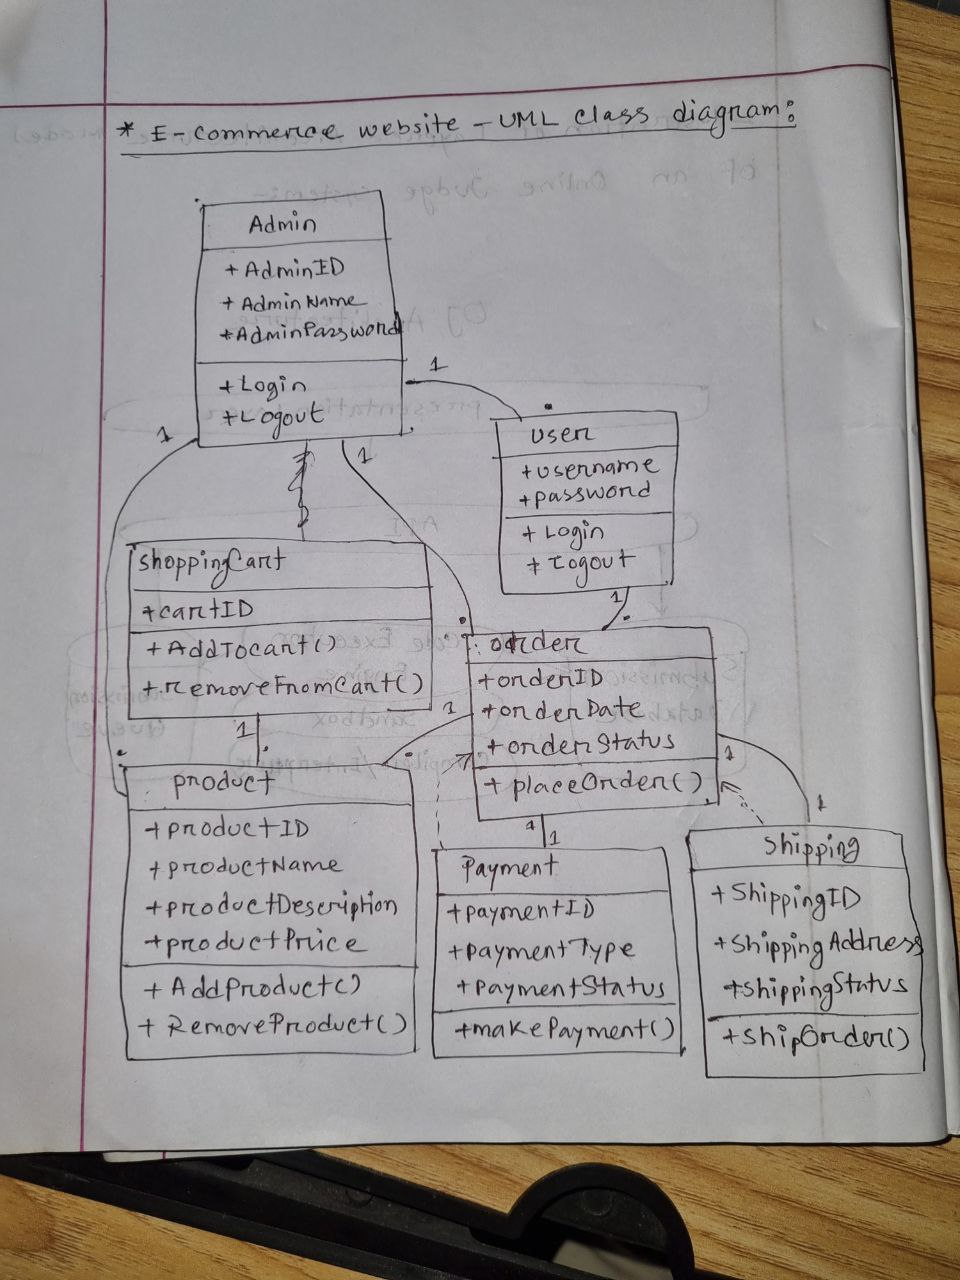 * E-commerce website - UML class diagram:
Admin
+ AdminID
+ AdminName
+ AdminPassword
+ Login
+ Logout
1
1
1
user
+ username
+ password
+ Login
+ Logout
1
shoppingCart
+ cartID
+ AddTocart()
+ removeFromCart()
1
order
+ orderID
+ orderDate
+ orderStatus
+ placeOrder()
1
1
1
1
1
product
+ productID
+ productName
+ productDescription
+ productPrice
+ AddProduct()
+ RemoveProduct()
Payment
+ paymentID
+ paymentType
+ paymentStatus
+ makePayment()
Shipping
+ ShippingID
+ ShippingAddress
+ shippingStatus
+ shipOrder()